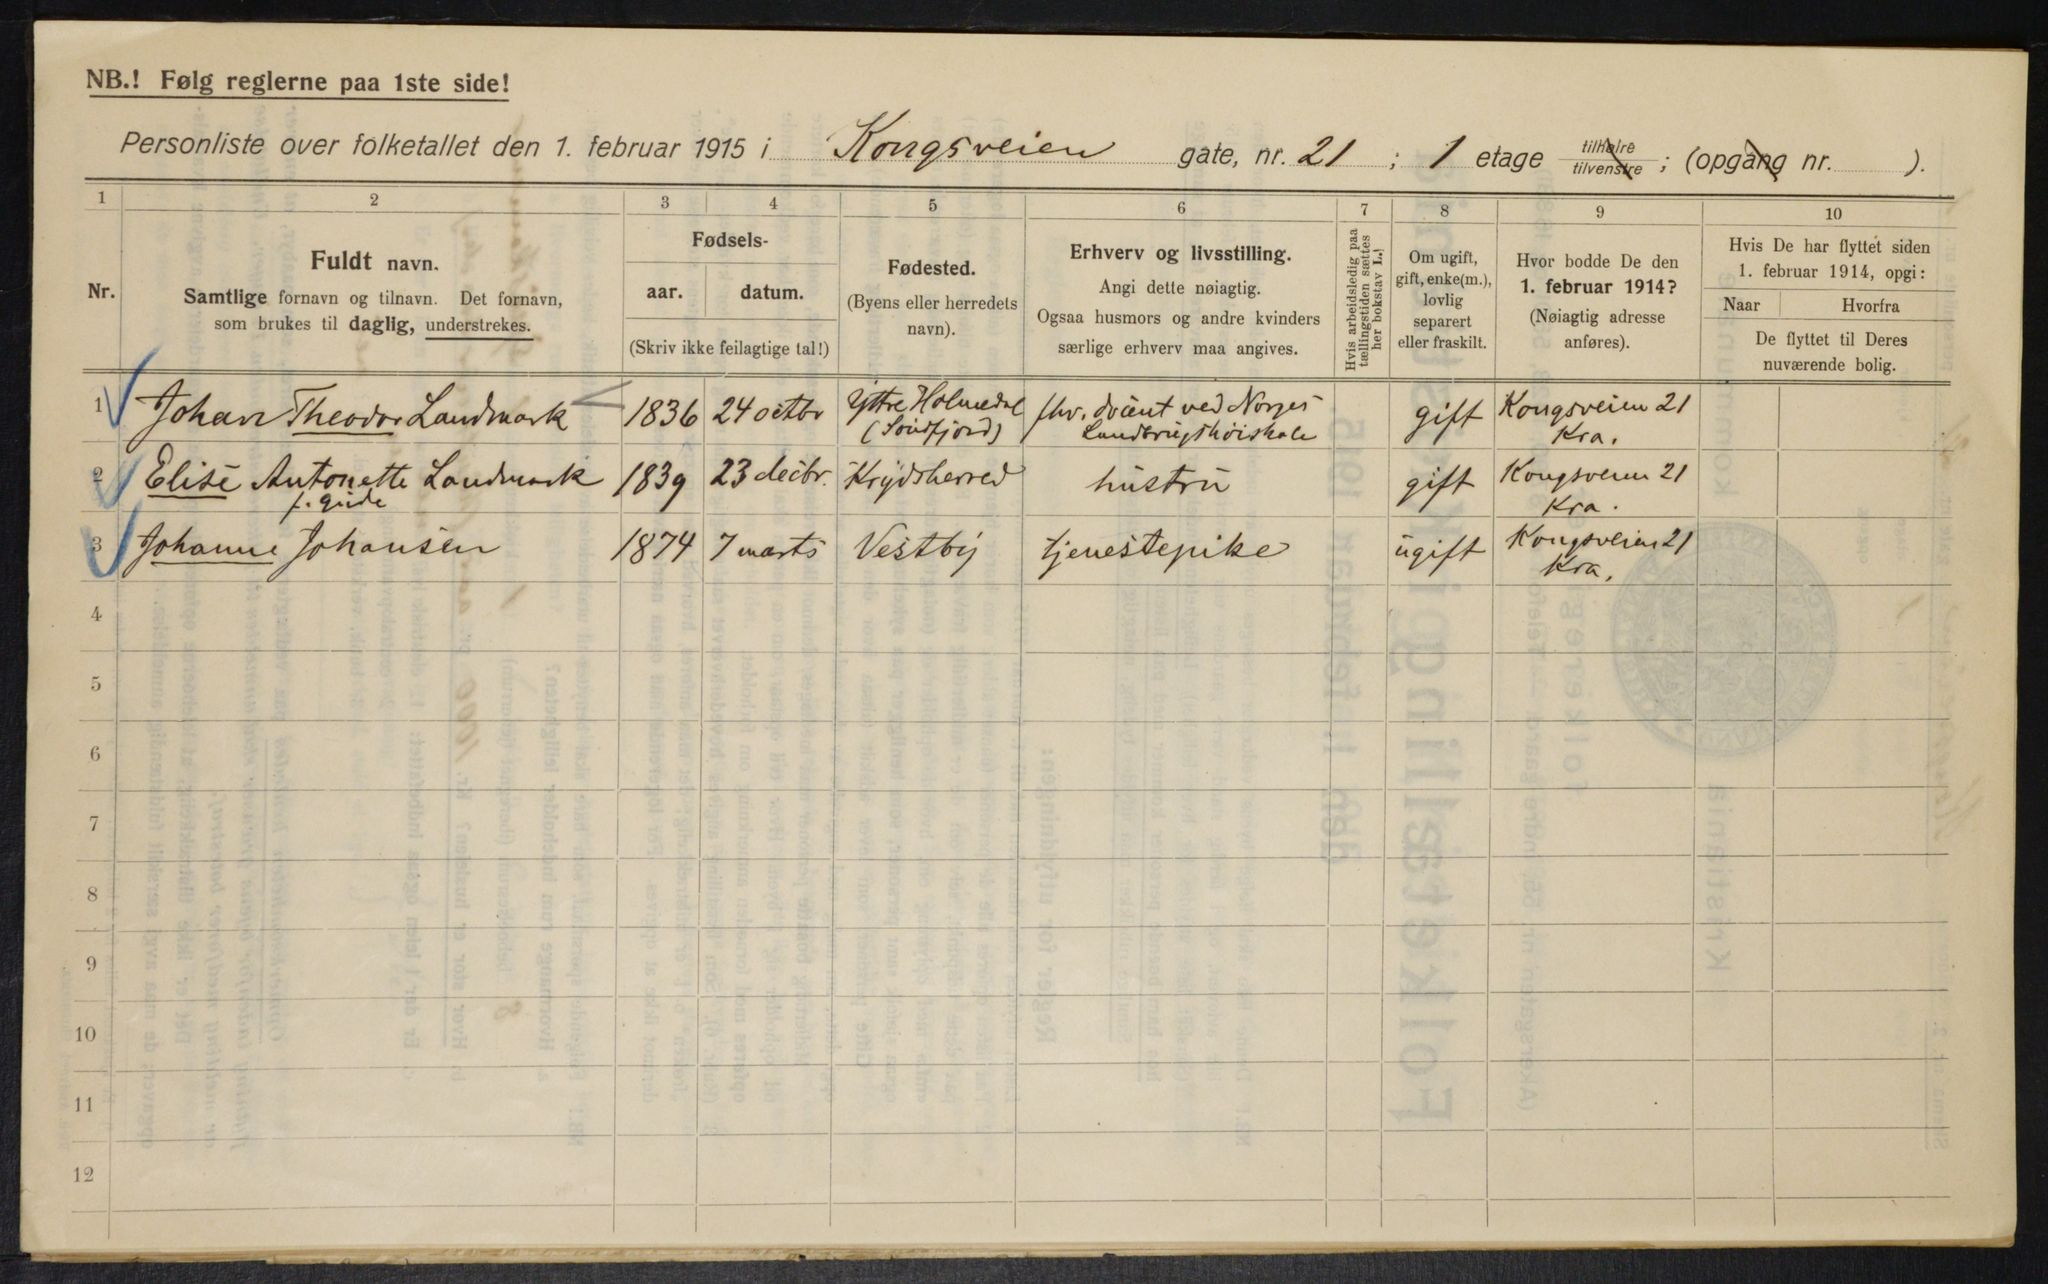 NB.! Følg reglerne paa 1ste side!
Personliste over folketallet den 1. februar 1915 i Kongsveien gate, nr. 21 ; 1 etage tilhøire tilvenstre ; (opgang nr. ).
1 2 3 4 5 6 7 8 9 10
Nr.
Fuldt navn.
Samtlige fornavn og tilnavn. Det fornavn,
som brukes til daglig, understrekes.
Fødsels-
aar. datum.
(Skriv ikke feilagtige tal!)
Fødested.
(Byens eller herredets
navn).
Erhverv og livsstilling.
Angi dette nøiagtig.
Ogsaa husmors og andre kvinders
særlige erhverv maa angives.
Hvis arbeidsledig paa
tællingstiden sættes
her bokstav L.!
Om ugift,
gift, enke(m.),
lovlig
separert
eller fraskilt.
Hvor bodde De den
1. februar 1914?
(Nøiagtig adresse
anføres).
Hvis De har flyttet siden
1. februar 1914, opgi:
Naar Hvorfra
De flyttet til Deres
nuværende bolig.
1 Johan Theodor Landmark 1836 24 octbr Yttre Holmedal fhv. docent ved Norges gift Kongsveien 21
(Söndfjord) Landbrugshöiskole Kra.
2 Elise Antonette Landmark 1839 23 decbr. Krydsherred hustru gift Kongsveien 21
f. Gude Kra.
3 Johanne Johansen 1874 7 marts Vestby tjenestepike ugift Kongsveien 21
Kra.
4
5
6
7
8
9
10
11
12